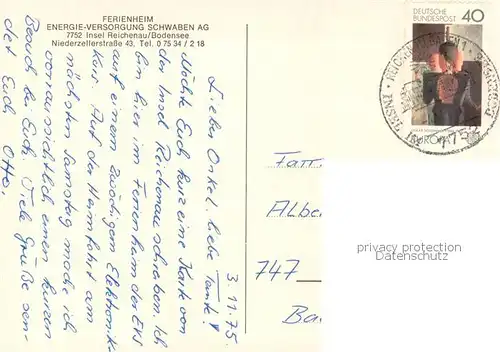 FERIENHEIM
ENERGIE-VERSORGUNG SCHWABEN AG
7752 Insel Reichenau/Bodensee
Niederzellerstraße 43, Tel. 0 75 34 / 2 18
3.11.75.
Lieber Onkel, liebe Tante!
Möchte Euch kurz eine Karte von
der Insel Reichenau schreiben. Ich
bin hier im Ferienheim der EVS
auf einem 2wöchigen Elektronik-
kurs. Auf der Heimfahrt am
nächsten Samstag mache ich
voraussichtlich einen kurzen
Besuch bei Euch. Viele Grüße sen-
det Euch Otto.
DEUTSCHE
BUNDESPOST
40
EUROPA
INSEL
775
Fam.
Albe
747
Ba
privacy protection
watermark